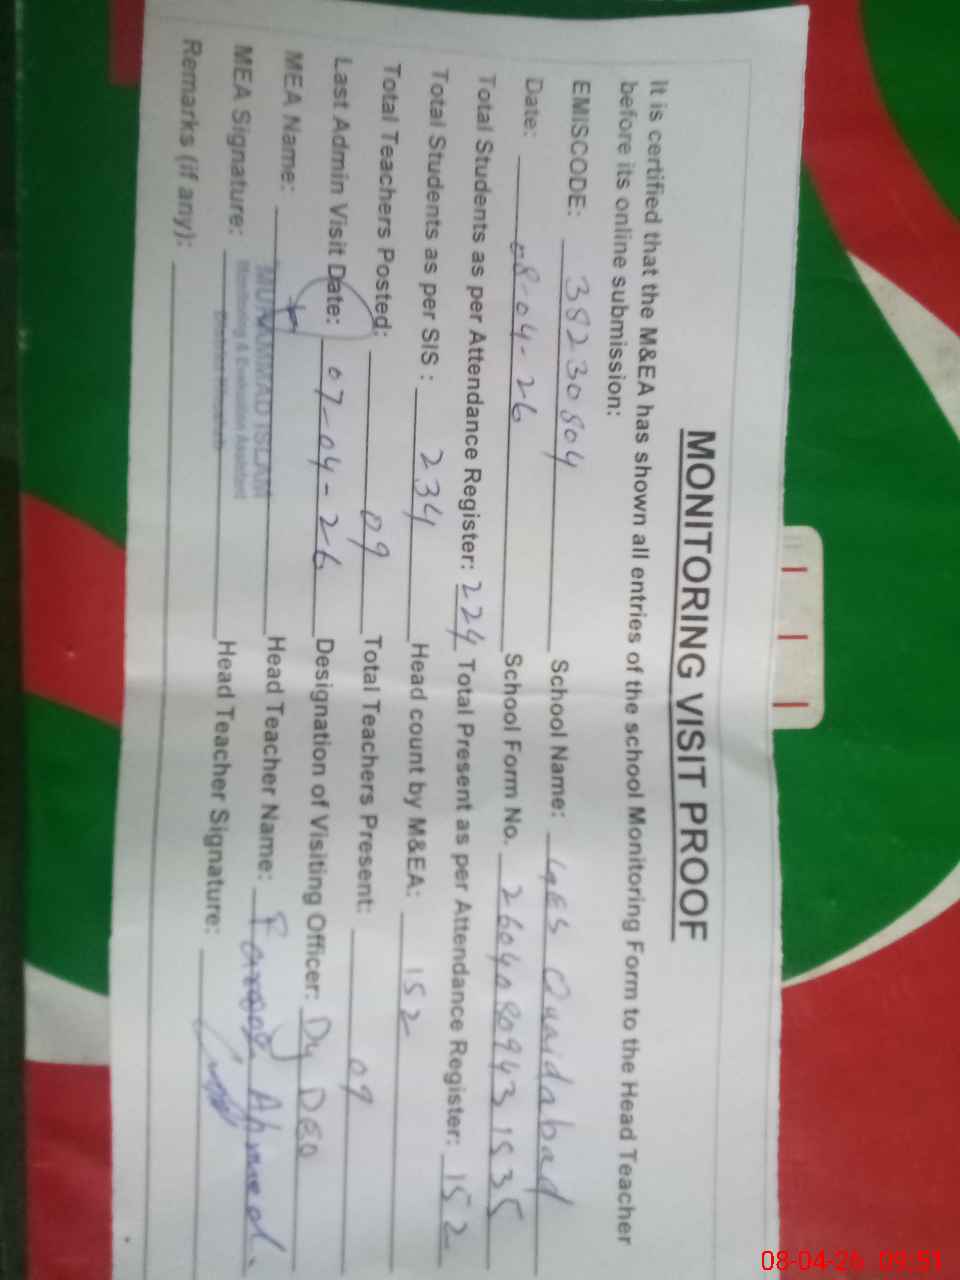 MONITORING VISIT PROOF
It is certified that the M&EA has shown all entries of the school Monitoring Form to the Head Teacher
before its online submission:
EMISCODE: 38230804 School Name: GES Quaidabad
Date: 08-04-26 School Form No. 26040809431535
Total Students as per Attendance Register: 224 Total Present as per Attendance Register: 152
Total Students as per SIS : 234 Head count by M&EA: 152
Total Teachers Posted: 09 Total Teachers Present: 09
Last Admin Visit Date: 07-04-26 Designation of Visiting Officer: Dy DEO
MEA Name: MUHAMMAD ISLAM Head Teacher Name: Farooq Ahmed
Monitoring & Evaluation Assistant
MEA Signature: Head Teacher Signature:
Remarks (if any):
08-04-26 09:51